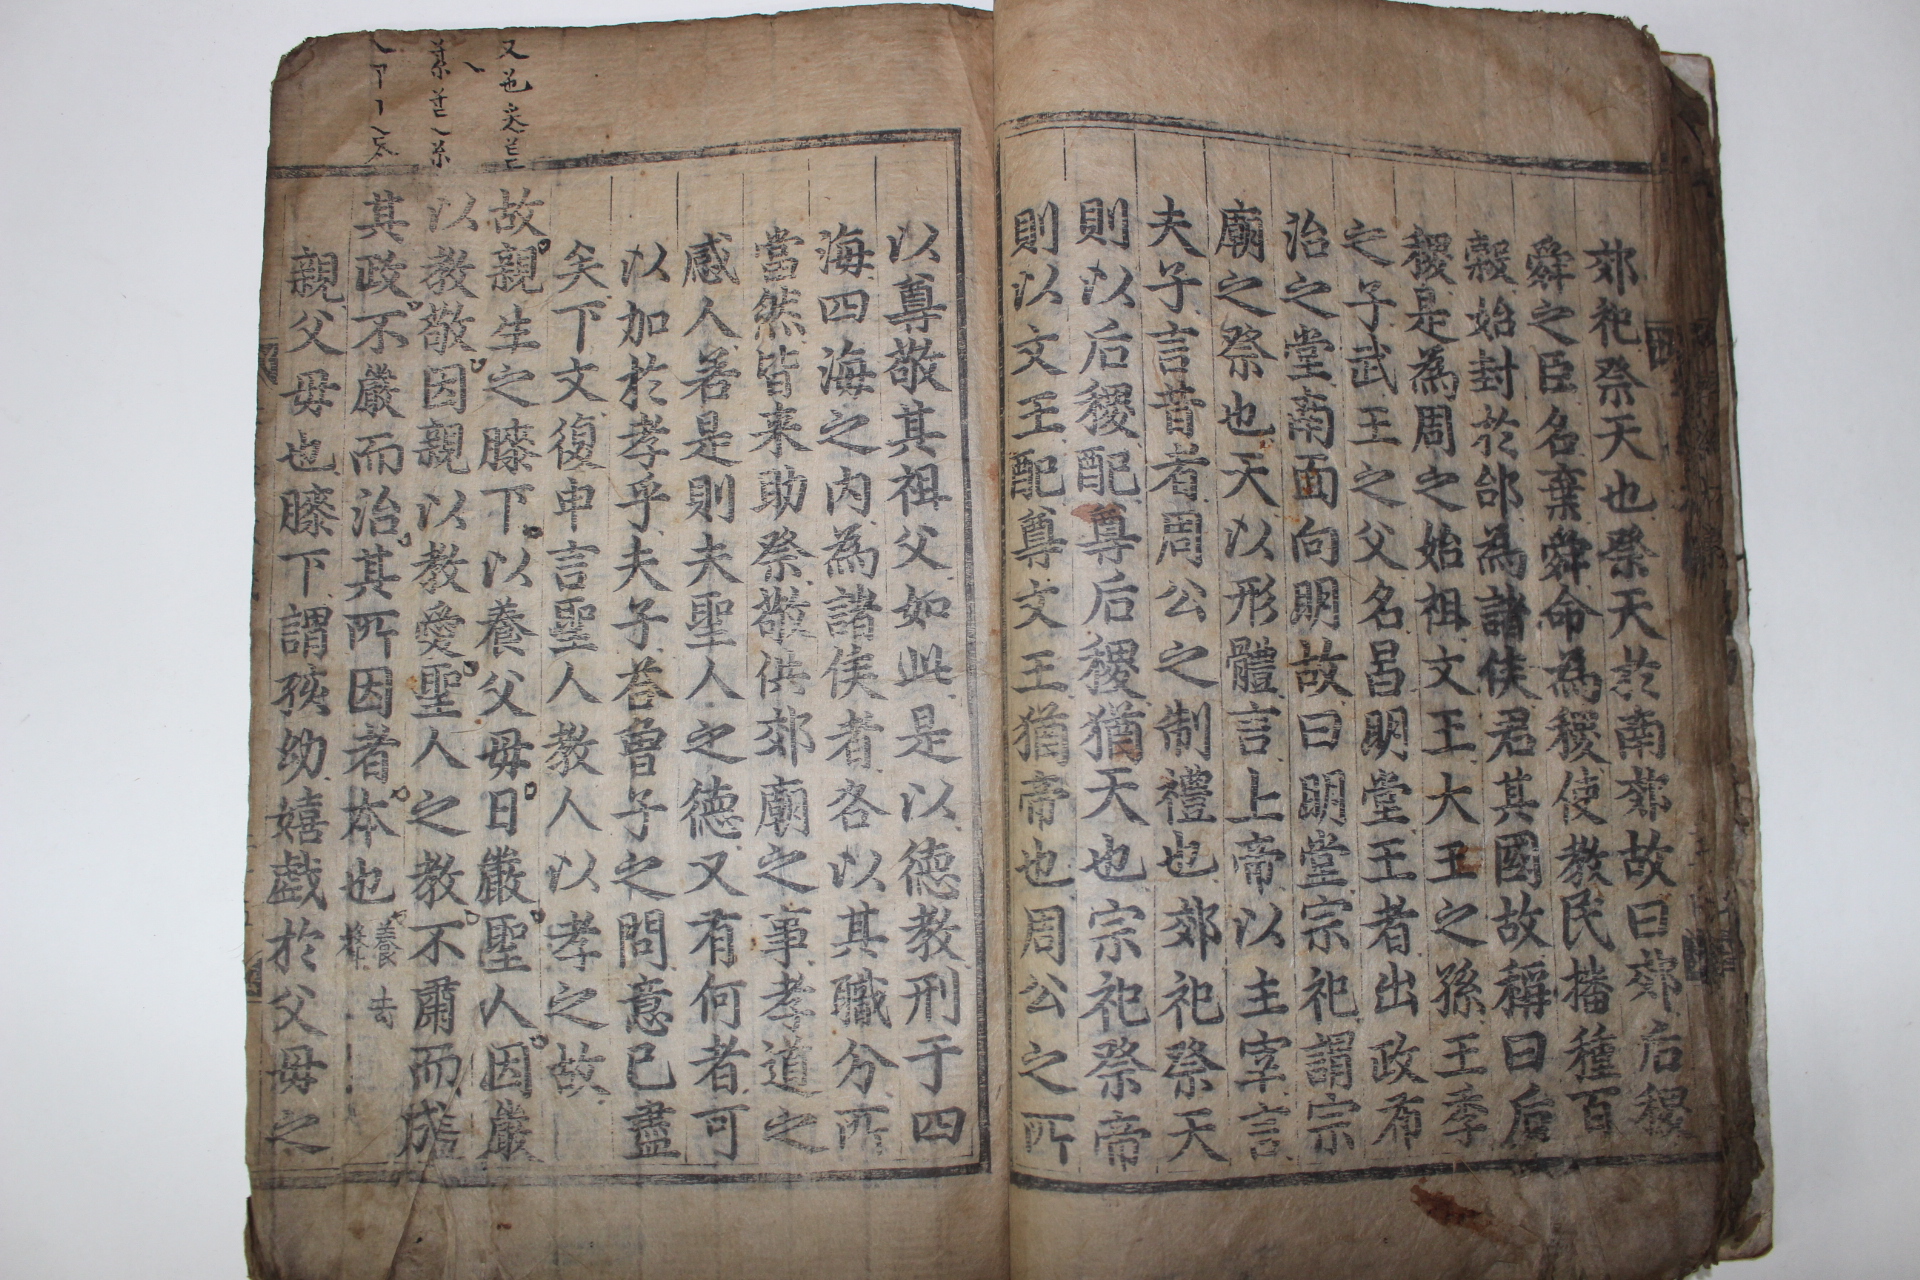 郊祀祭天也祭天於南郊故曰郊后稷
舜之臣名棄舜命為稷使教民播種百
穀始封於邰為諸侯君其國故稱曰后
稷是為周之始祖文王大王之孫王季
之子武王之父名昌明堂王者出政布
治之堂南面向明故曰明堂宗祀謂宗
廟之祭也天以形體言上帝以主宰言
夫子言昔者周公之制禮也郊祀祭天
則以后稷配尊后稷猶天也宗祀祭帝
則以文王配尊文王猶帝也周公之所
以尊敬其祖父如此是以德教刑于四
海四海之內為諸侯者各以其職分所
當然皆来助祭敬供郊廟之事孝道之
感人若是則夫聖人之德又有何者可
以加於孝乎夫子荅曾子之問意已盡
矣下文復申言聖人教人以孝之故
故親生之膝下以養父毋日嚴聖人因嚴
以教敬因親以教愛聖人之教不肅而成
其政不嚴而治其所因者本也 養去
親父毋也膝下謂孩幼嬉戯於父毋之